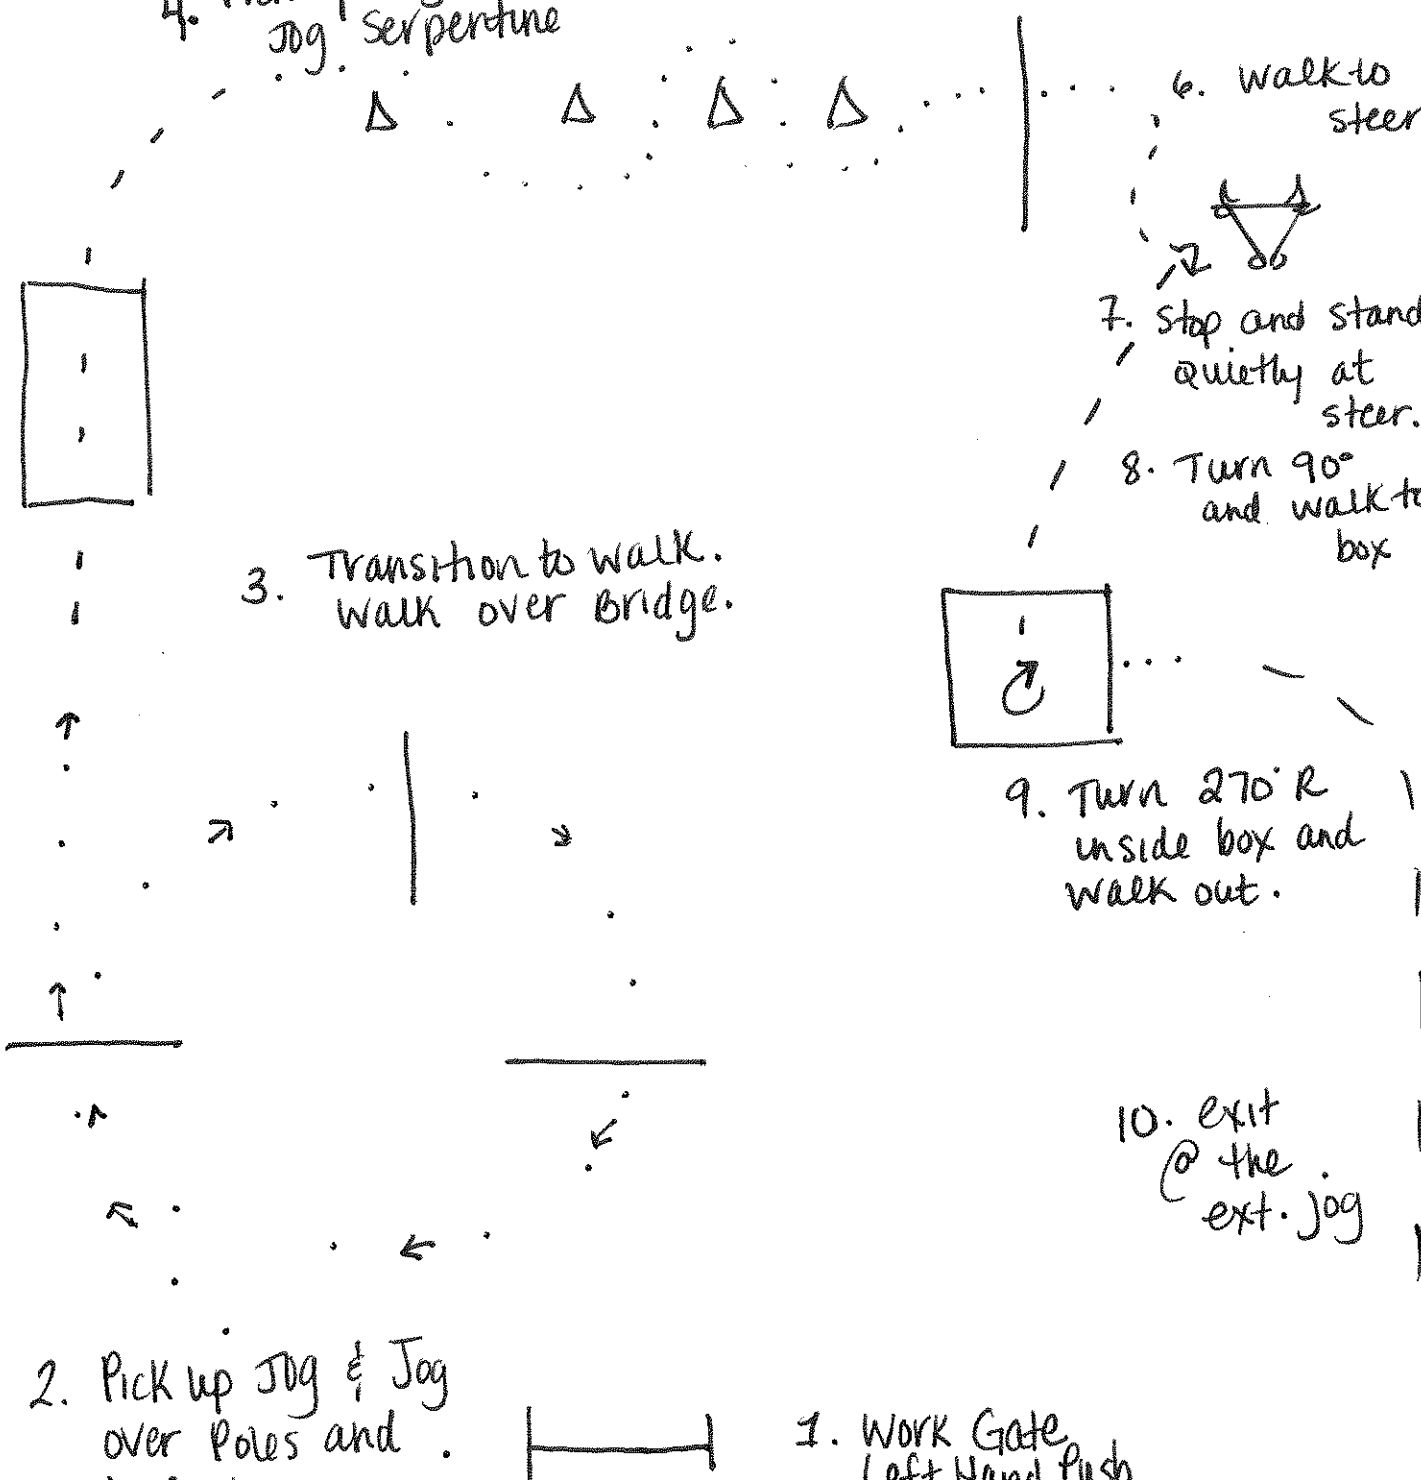 4.
Jog Serpentine
6. Walk to
steer
7. Stop and Stand
Quietly at
steer.
8. Turn 90°
and walk to
box
3. Transition to walk.
Walk over Bridge.
9. Turn 270° R
inside box and
walk out.
10. exit
@ the
ext. jog
2. Pick up Jog & Jog
over Poles and
1. Work Gate
Left Hand Push